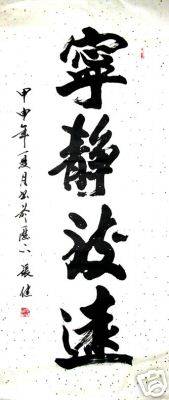 寧靜致遠
甲申年夏月書於
張健